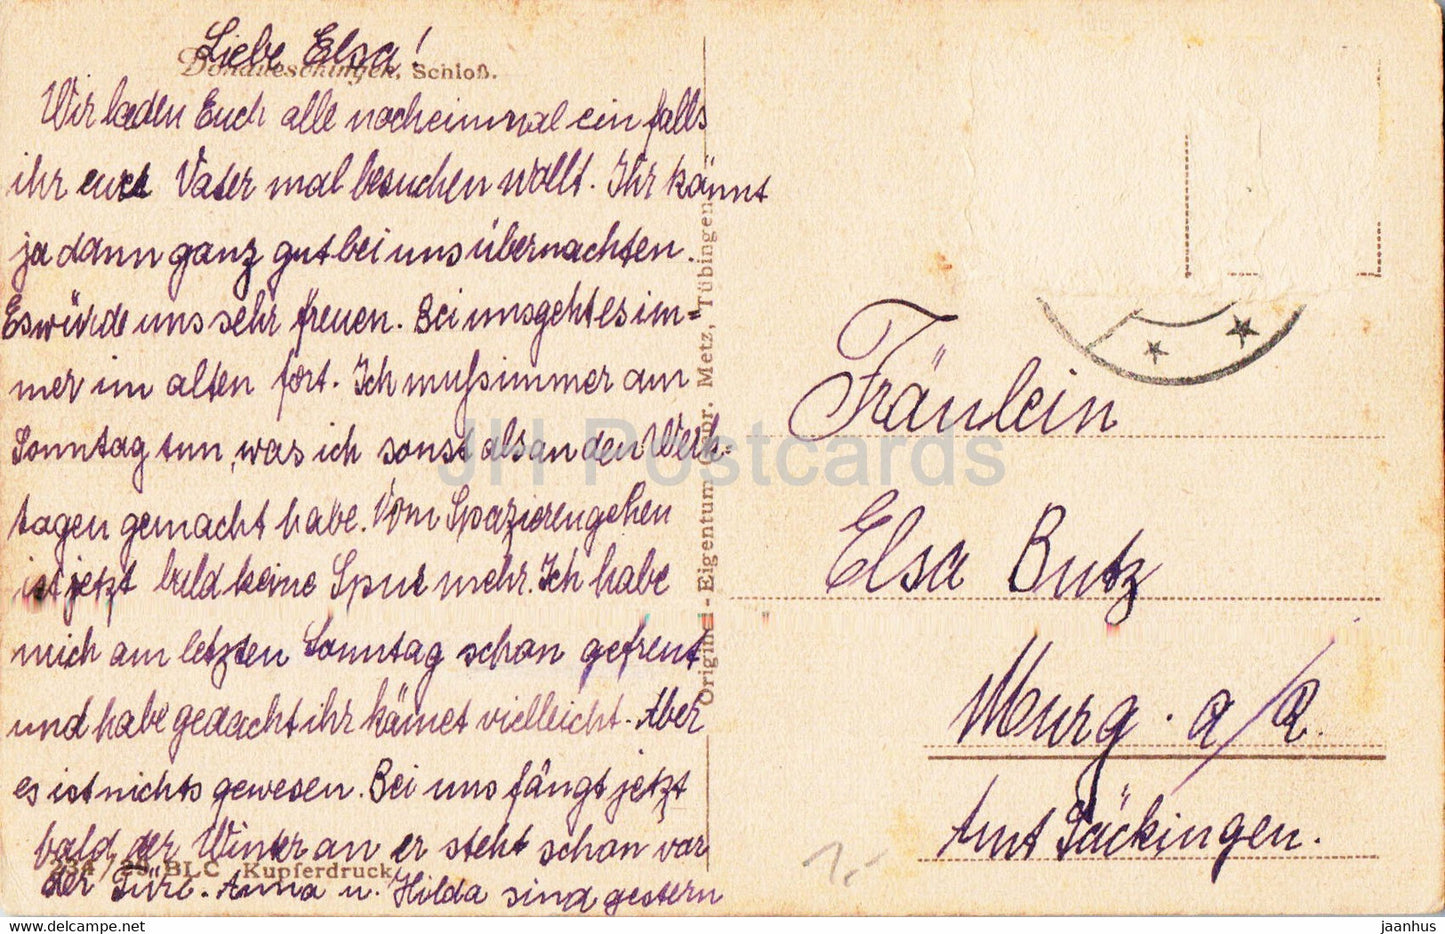 Liebe Elsa!
Donaueschingen, Schloß.
Wir laden Euch alle nocheinmal ein falls
ihr eure Vater mal besuchen wollt. Ihr könnt
ja dann ganz gut bei uns übernachten.
Es würde uns sehr freuen. Bei uns geht es im=
mer im alten fort. Ich muß immer am
Sonntag tun, was ich sonst als an den Werk=
tagen gemacht habe. Vom Spazierengehen
ist jetzt bald keine Spur mehr. Ich habe
mich am letzten Sonntag schon gefreut
und habe gedacht ihr kämet vielleicht. Aber
es ist nichts gewesen. Bei uns fängt jetzt
bald der Winter an er steht schon vor
der Türe. Anna u. Hilda sind gestern
234/28 BLC Kupferdruck
Original-Eigentum Gebr. Metz, Tübingen
Fräulein
Elsa Butz
Murg. a/R.
Amt Säckingen.
1.-
JH Postcards
HipPostcard.com
jaanhus